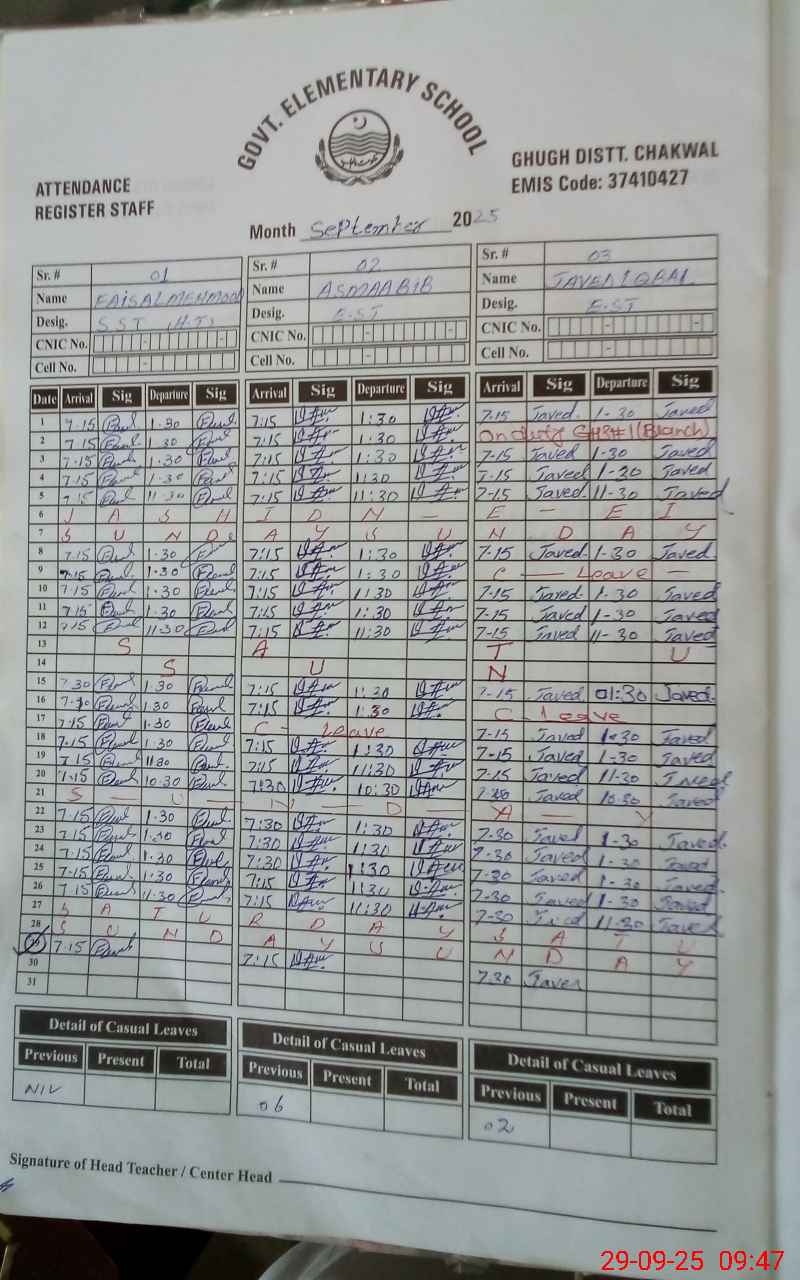 GOVT. ELEMENTARY SCHOOL
GHUGH DISTT. CHAKWAL
EMIS Code: 37410427
ATTENDANCE
REGISTER STAFF
Month September 2025
Sr. # 01 Sr. # 02 Sr. # 03
Name FAISAL MEHMOOD Name ASMA ABIB Name JAVED IQBAL
Desig. SST (H.T) Desig. E.ST Desig. E.ST
CNIC No. CNIC No. CNIC No.
Cell No. Cell No. Cell No.
Date Arrival Sig Departure Sig Arrival Sig Departure Sig Arrival Sig Departure Sig
1 7.15 1.30 7:15 1:30 7-15 Javed 1-30 Javed
2 7.15 1.30 7:15 1:30 On duty GHS#1 (Branch)
3 7.15 1.30 7:15 1:30 7-15 Javed 1-30 Javed
4 7.15 1.30 7:15 1:30 7-15 Javed 1-30 Javed
5 7.15 11.30 7:15 11:30 7-15 Javed 11-30 Javed
6 J A S H I D N - E - E I
7 S U N D A Y S U N D A Y
8 7.15 1.30 7:15 1:30 7-15 Javed 1-30 Javed
9 7.15 1.30 7:15 1:30 C - Leave -
10 7.15 1.30 7:15 1:30 7-15 Javed 1-30 Javed
11 7.15 1.30 7:15 1:30 7-15 Javed 1-30 Javed
12 7.15 11.30 7:15 11:30 7-15 Javed 11-30 Javed
13 S A T U
14 S U N
15 7.30 1.30 7:15 1:30 7-15 Javed 01:30 Javed
16 1.30 7:15 1:30 C - Leave
17 7.15 1.30 C - Leave 7-15 Javed 1-30 Javed
18 7.15 1.30 7:15 1:30 7-15 Javed 1-30 Javed
19 7.15 11.30 7:15 11:30 7-15 Javed 11-30 Javed
20 7.15 10.30 7:30 10:30 Javed 10-30 Javed
21 S - U - N - D - A - Y
22 7.15 1.30 7:30 1:30 7-30 Javed 1-30 Javed
23 7.15 1.30 7:30 1:30 7-30 Javed 1-30 Javed
24 7.15 1.30 7:30 1:30 7-30 Javed 1-30 Javed
25 7.15 1.30 7:15 1:30 7-30 Javed 1-30 Javed
26 7.15 11.30 7:15 11:30 7-30 Javed 11-30 Javed
27 S A T U R D A Y S A T U
28 S U N D A Y S U N D A Y
29 7.15 7:15 7.30 Javed
30
31
Detail of Casual Leaves Detail of Casual Leaves Detail of Casual Leaves
Previous Present Total Previous Present Total Previous Present Total
NIL 06 02
Signature of Head Teacher / Center Head
29-09-25 09:47